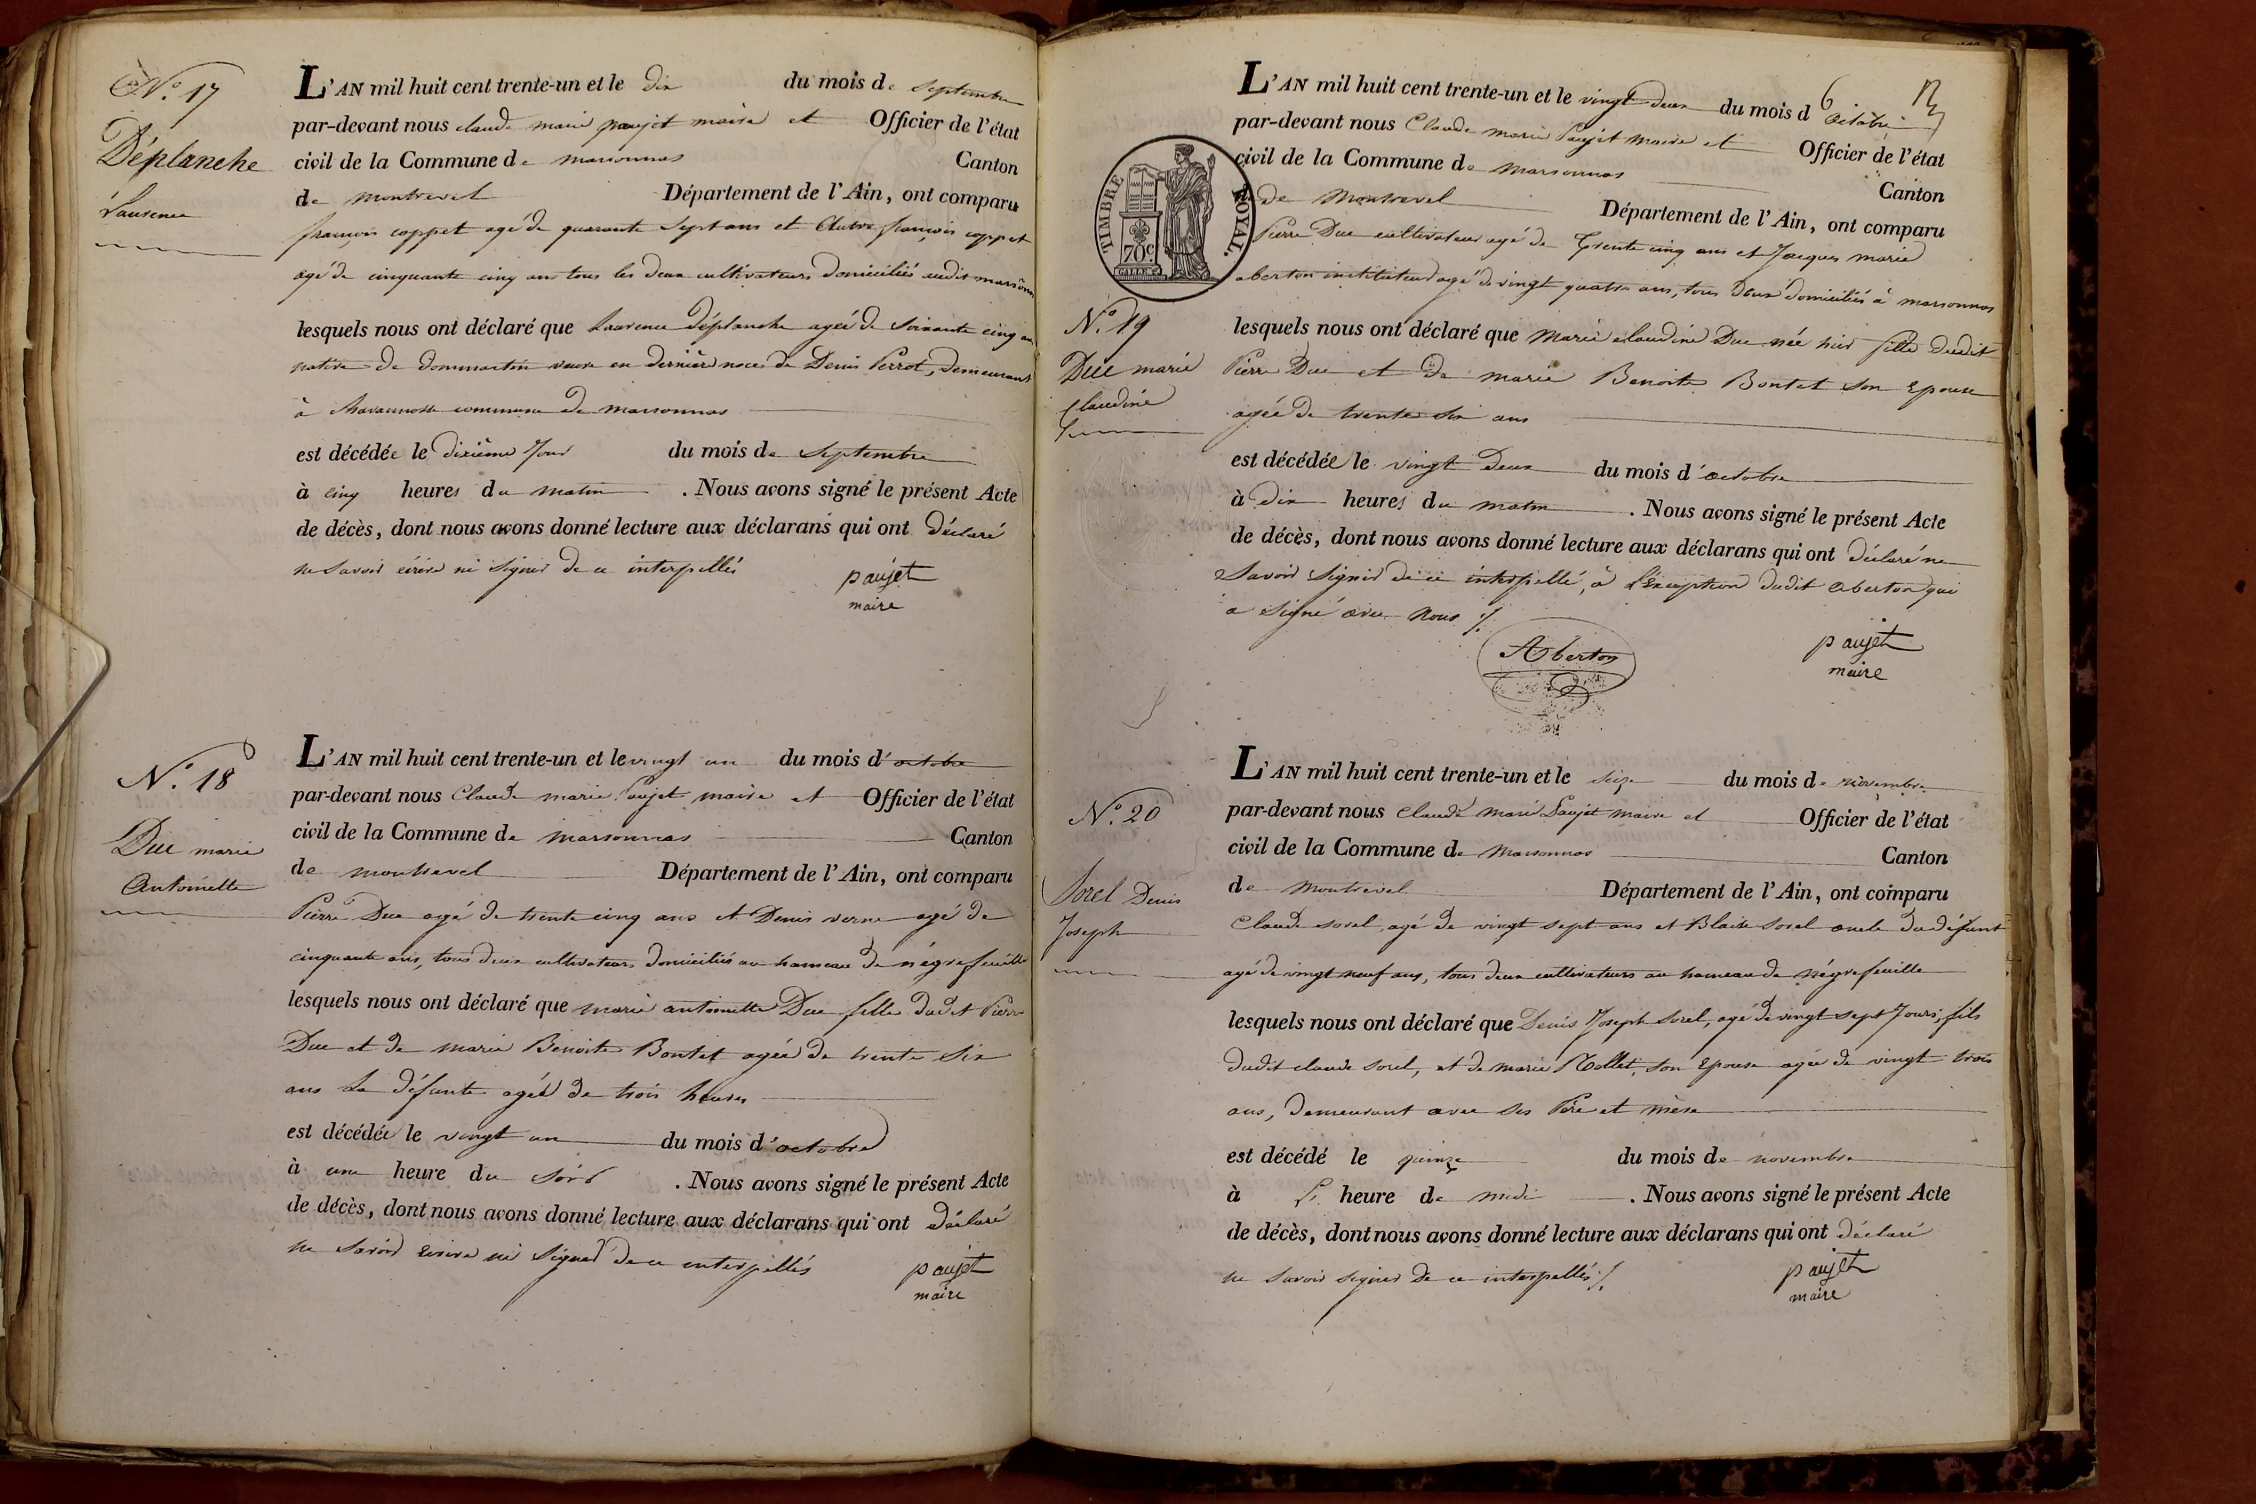 N.º 17
Déplanche
Laurence
L'AN mil huit cent trente-un et le dix du mois de septembre
par-devant nous claude marie paujet maire et Officier de l'état
civil de la Commune de marsonnas Canton
de montrevel Département de l'Ain, ont comparu
françois coppet agé de quarante sept ans et Autre françois coppet
agé de cinquante cinq ans tous les deux cultivateurs domiciliés audit marsonnas
lesquels nous ont déclaré que Laurence déplanche agée de soixante cinq ans
native de dommartin veuve en dernière noces de Denis Perrot, demeurant
à commune de marsonnas
est décédée le dixième jour du mois de septembre
à cinq heures du matin . Nous avons signé le présent Acte
de décès, dont nous avons donné lecture aux déclarans qui ont déclaré
ne savoir écrire ni signer de ce interpellés
paujet
maire
N.º 18
Duc marie
Antoinette
L'AN mil huit cent trente-un et le vingt un du mois d'octobre
par-devant nous Claude marie Paujet maire et Officier de l'état
civil de la Commune de marsonnas Canton
de montrevel Département de l'Ain, ont comparu
Pierre Duc agé de trente cinq ans et Denis verne agé de
cinquante ans, tous deux cultivateurs domiciliés au hameau de négrefeuille
lesquels nous ont déclaré que marie antoinette Duc fille dudit Pierre
Duc et de marie Benoite Bontet agée de trente six
ans La défunte agée de trois heures
est décédée le vingt un du mois d'octobre
à une heure du soir . Nous avons signé le présent Acte
de décès, dont nous avons donné lecture aux déclarans qui ont déclaré
ne savoir écrire ni signer de ce interpellés
paujet
maire
TIMBRE ROYAL.
70c
N.º 19
Duc marie
Claudine
L'AN mil huit cent trente-un et le vingt deux du mois d'octobre
par-devant nous Claude marie Paujet maire et Officier de l'état
civil de la Commune de marsonnas Canton
de Montrevel Département de l'Ain, ont comparu
Pierre Duc cultivateur agé de Trente cinq ans et Jacques marie
aberton instituteur agé de vingt quatre ans, tous deux domiciliés à marsonnas
lesquels nous ont déclaré que Marie claudine Duc née hier fille dudit
Pierre Duc et de marie Benoite Bontet son Epouse
agée de trente six ans
est décédée le vingt Deux du mois d'octobre
à dix heures du matin . Nous avons signé le présent Acte
de décès, dont nous avons donné lecture aux déclarans qui ont déclaré ne
savoir signer de ce interpellé, à l'Exception dudit aberton qui
a signé avec nous /.
Aberton
paujet
maire
N.º 20
Sorel Denis
Joseph
L'AN mil huit cent trente-un et le seize du mois de novembre
par-devant nous Claude Marie Paujet maire et Officier de l'état
civil de la Commune de Marsonnas Canton
de Montrevel Département de l'Ain, ont comparu
Claude sorel, agé de vingt sept ans et Blaise sorel oncle du défunt
agé de vingt neuf ans, tous deux cultivateurs au hameau de négrefeuille
lesquels nous ont déclaré que Denis Joseph Sorel, agé de vingt sept Jours, fils
dudit claude sorel, et de marie Mollet, son Epouse agée de vingt trois
ans, demeurant avec ses Père et mère
est décédé le quinze du mois de novembre
à L' heure de midi . Nous avons signé le présent Acte
de décès, dont nous avons donné lecture aux déclarans qui ont déclaré
ne savoir signer de ce interpellés /.
paujet
maire